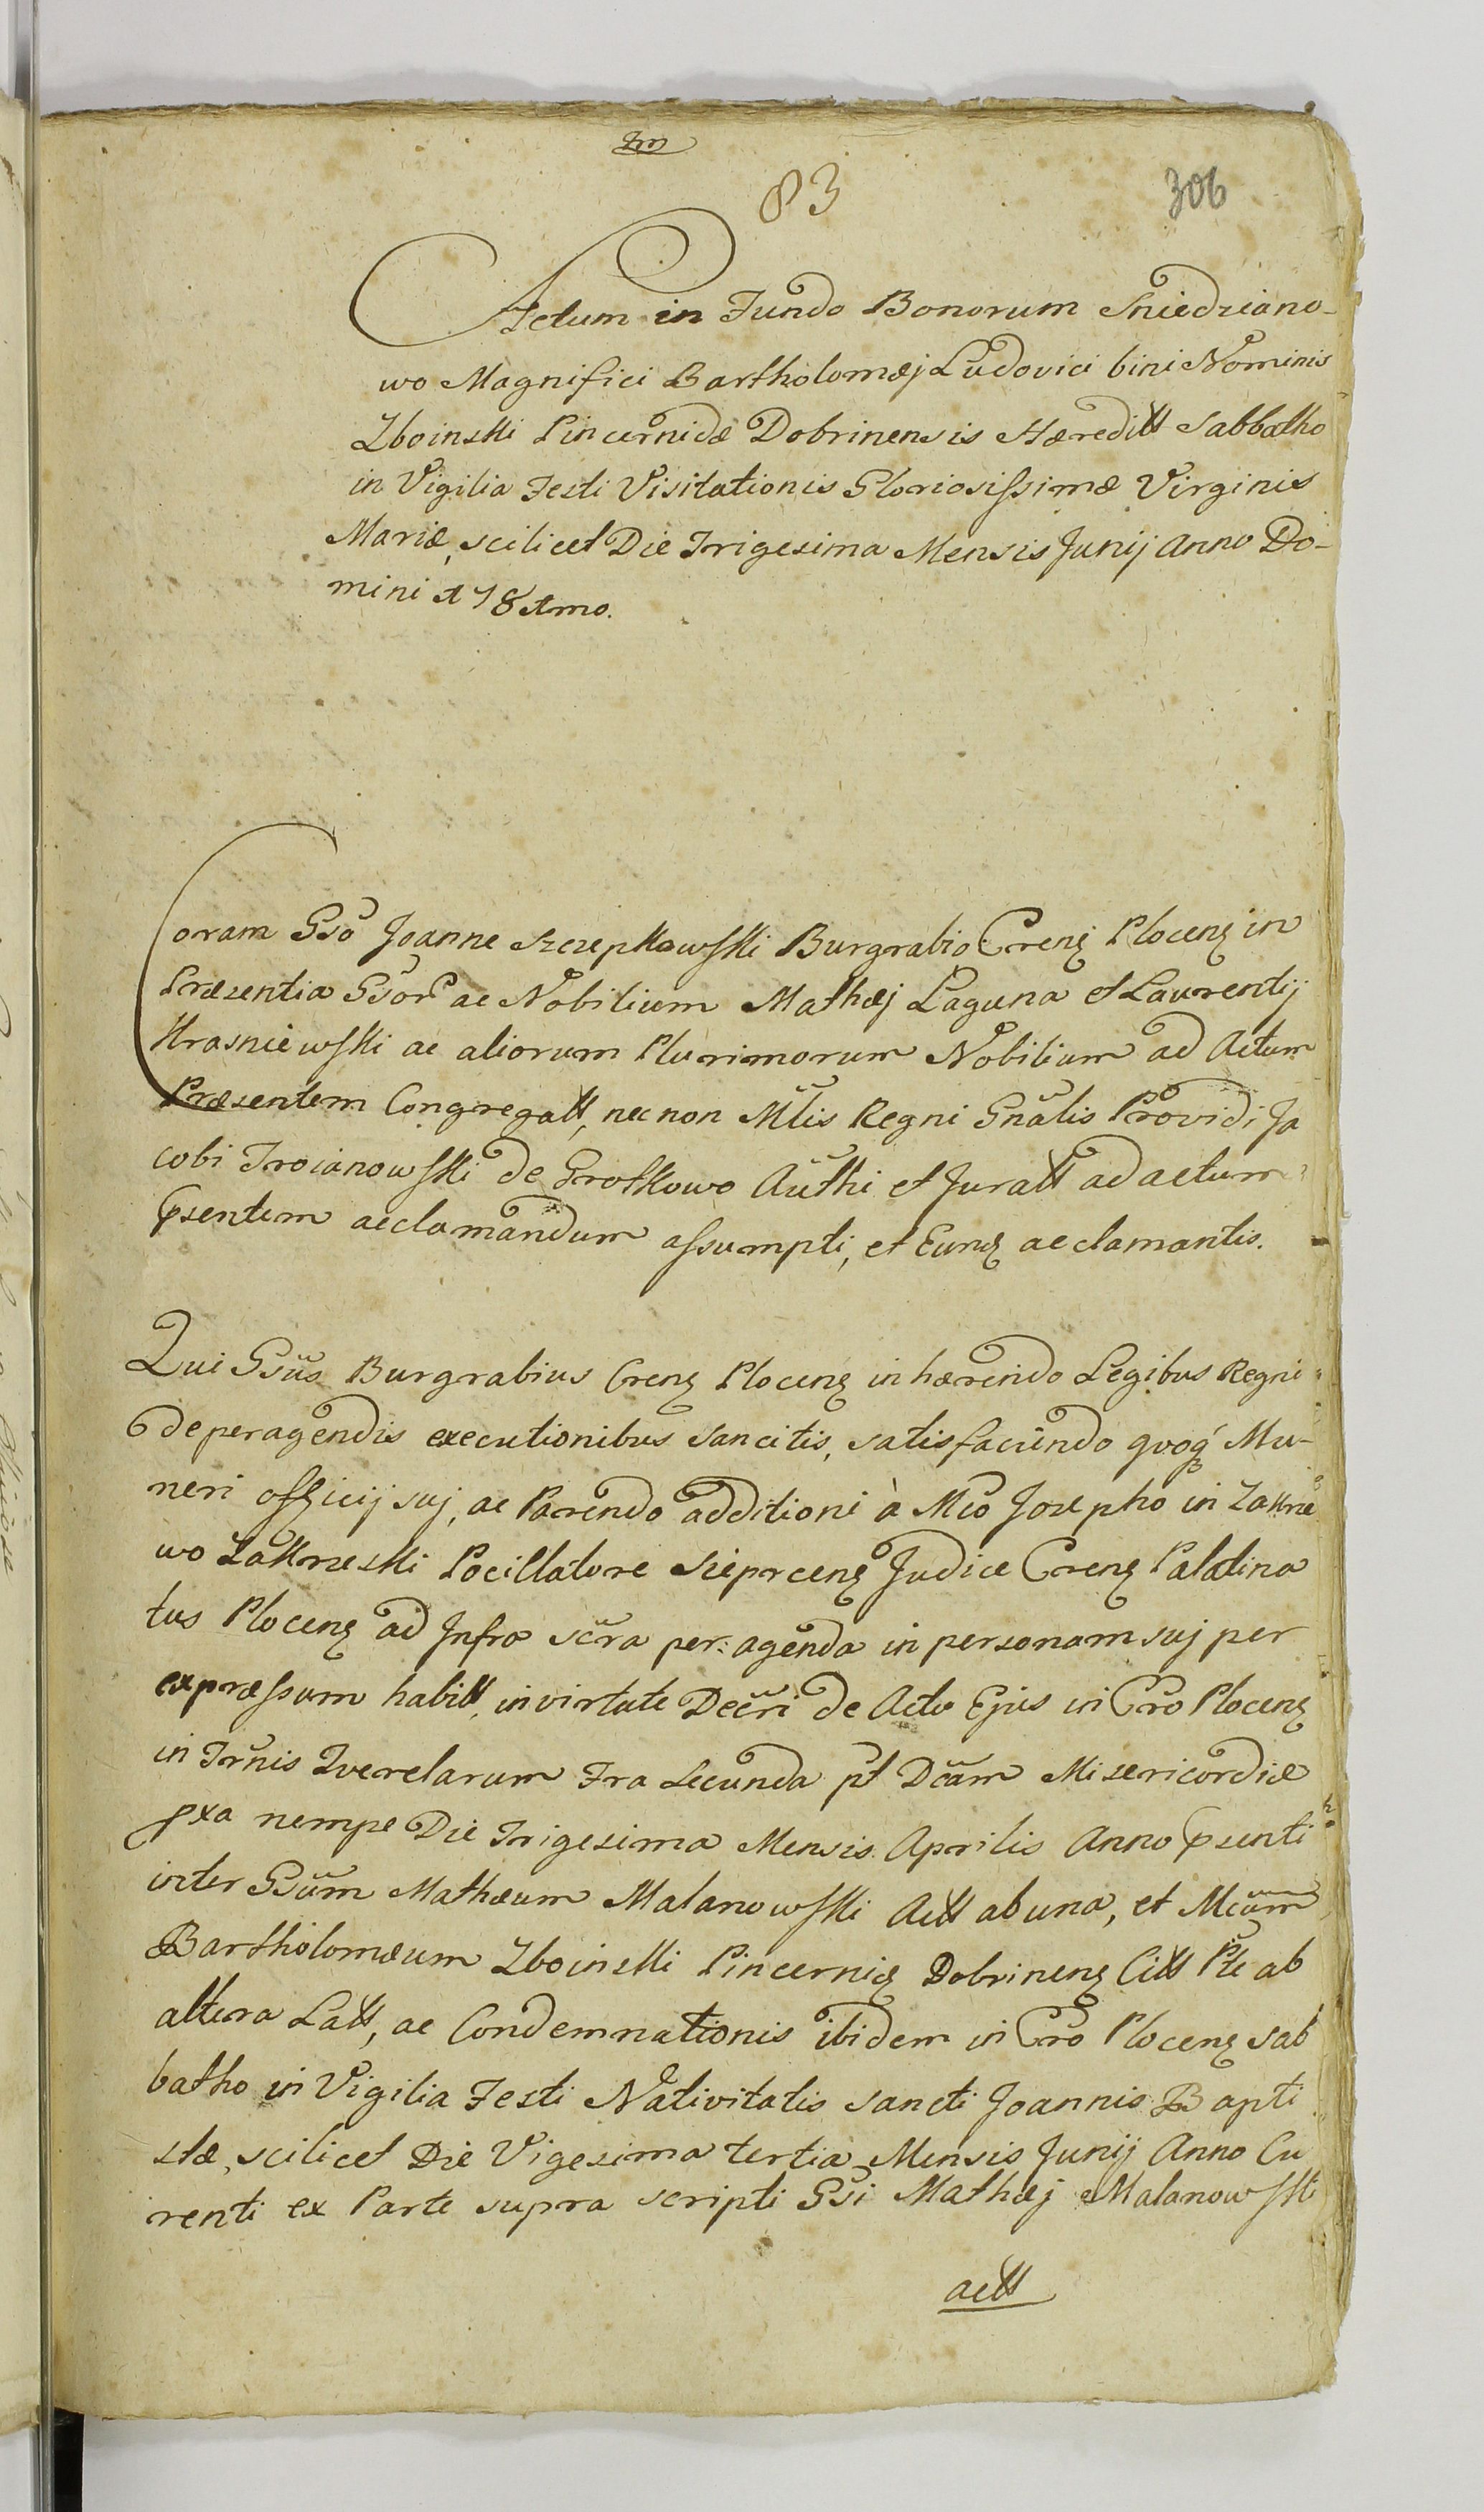 83
306
Actum in Fundo Bonorum Sniedziano-
wo Magnifici Bartholomæj Ludovici bini Nominis
Zboinski Pincernidæ Dobrinensis Hæreditt Sabbatho
in Vigilia Festi Visitationis Gloriosissimæ Virginis
Mariæ, scilicet Die Trigesima Mensis Junij Anno Do-
mini 1781mo.
Coram Gso Joanne Szczepkowski Burgrabio Crenȩ Plocenȩ in
Præsentia Gsor ac Nobilium Mathæj Laguna et Laurentij
Krasniewski ac aliorum Plurimorum Nobilium ad Actum
Præsentem Congregatt, nec non Mtis Regni Gnalis Providi Ja
cobi Troianowski de Grotkowo Authi et Juratt ad actum
Psentem acclamandum assumpti, et Eunȩ acclamantis.
Qui Gsus Burgrabius Crenȩ Plocenȩ in hærendo Legibus Regni
de peragendis executionibus sancitis, satisfaciendo quoq Mu-
neri officij suj, ac Parendo additioni à Mco Josepho in Zakrze
wo Zakrzeski Pocillatore Sieprcenȩ Judice Crenȩ Palatina
tus Plocenȩ ad Infra scra per: agenda in personam suj per
expræssum habitt, in virtute Decri de Actu Ejus in Cro Plocenȩ
in Trnis Querelarum Fra Secunda pt Dcam Misericordiæ
pxa nempe Die Trigesima Mensis Aprilis Anno Psenti
inter Gsum Mathæum Malanowski Actt ab una, et Mcum
Bartholomæum Zboinski Pincernidȩ Dobrinenȩ Citt Pte ab
altera Latt, ac Condemnationis ibidem in Cro Plocenȩ Sab
batho in Vigilia Festi Nativitatis Sancti Joannis Bapti
stæ, scilicet Die Vigesima tertia Mensis Junij Anno Cu
renti ex Parte supra scripti Gsi Mathæj Malanowski
actt